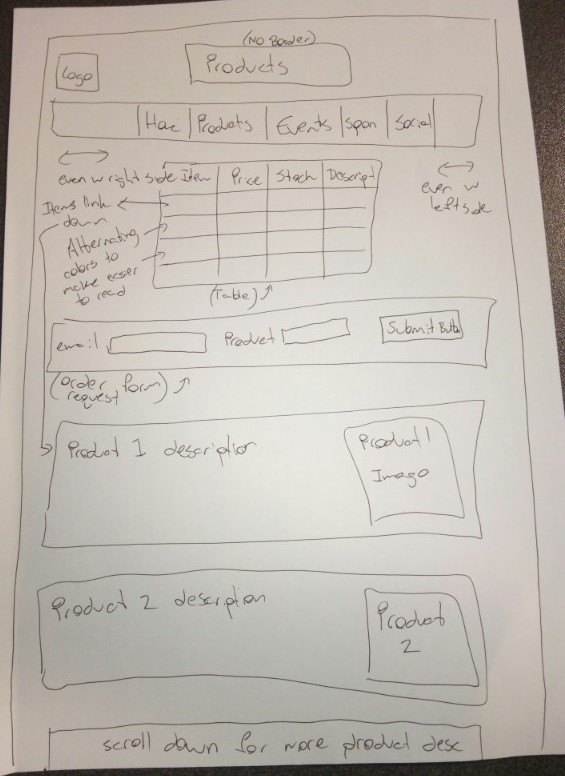 (No Border)
Logo
Products
Home Products Events Spon Social
even w right side
Item Price Stock Descript
even w
left side
Items link
down
Alternating
colors to
make easer
to read
(Table)
email Product Submit Butto
(order
request form)
Product 1 description
Product 1
Image
Product 2 description
Product
2
scroll down for more product desc